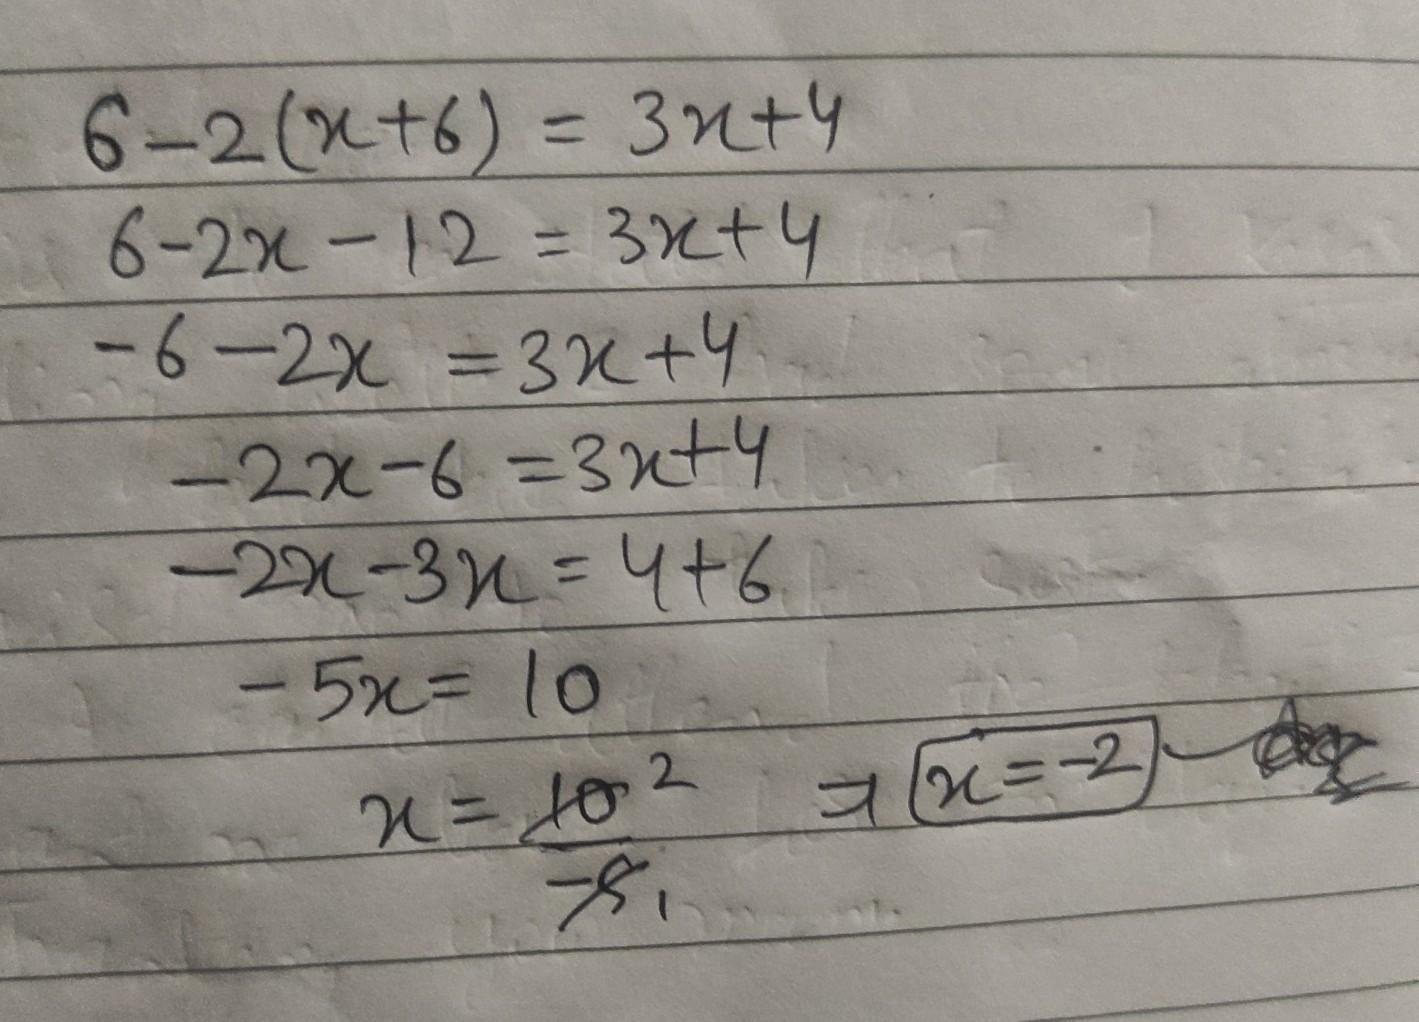 6-2(x+6) = 3x+4
6-2x-12 = 3x+4
-6-2x = 3x+4
-2x-6 = 3x+4
-2x-3x = 4+6
-5x = 10
x = 10/-5 2 1 ⇒ x = -2